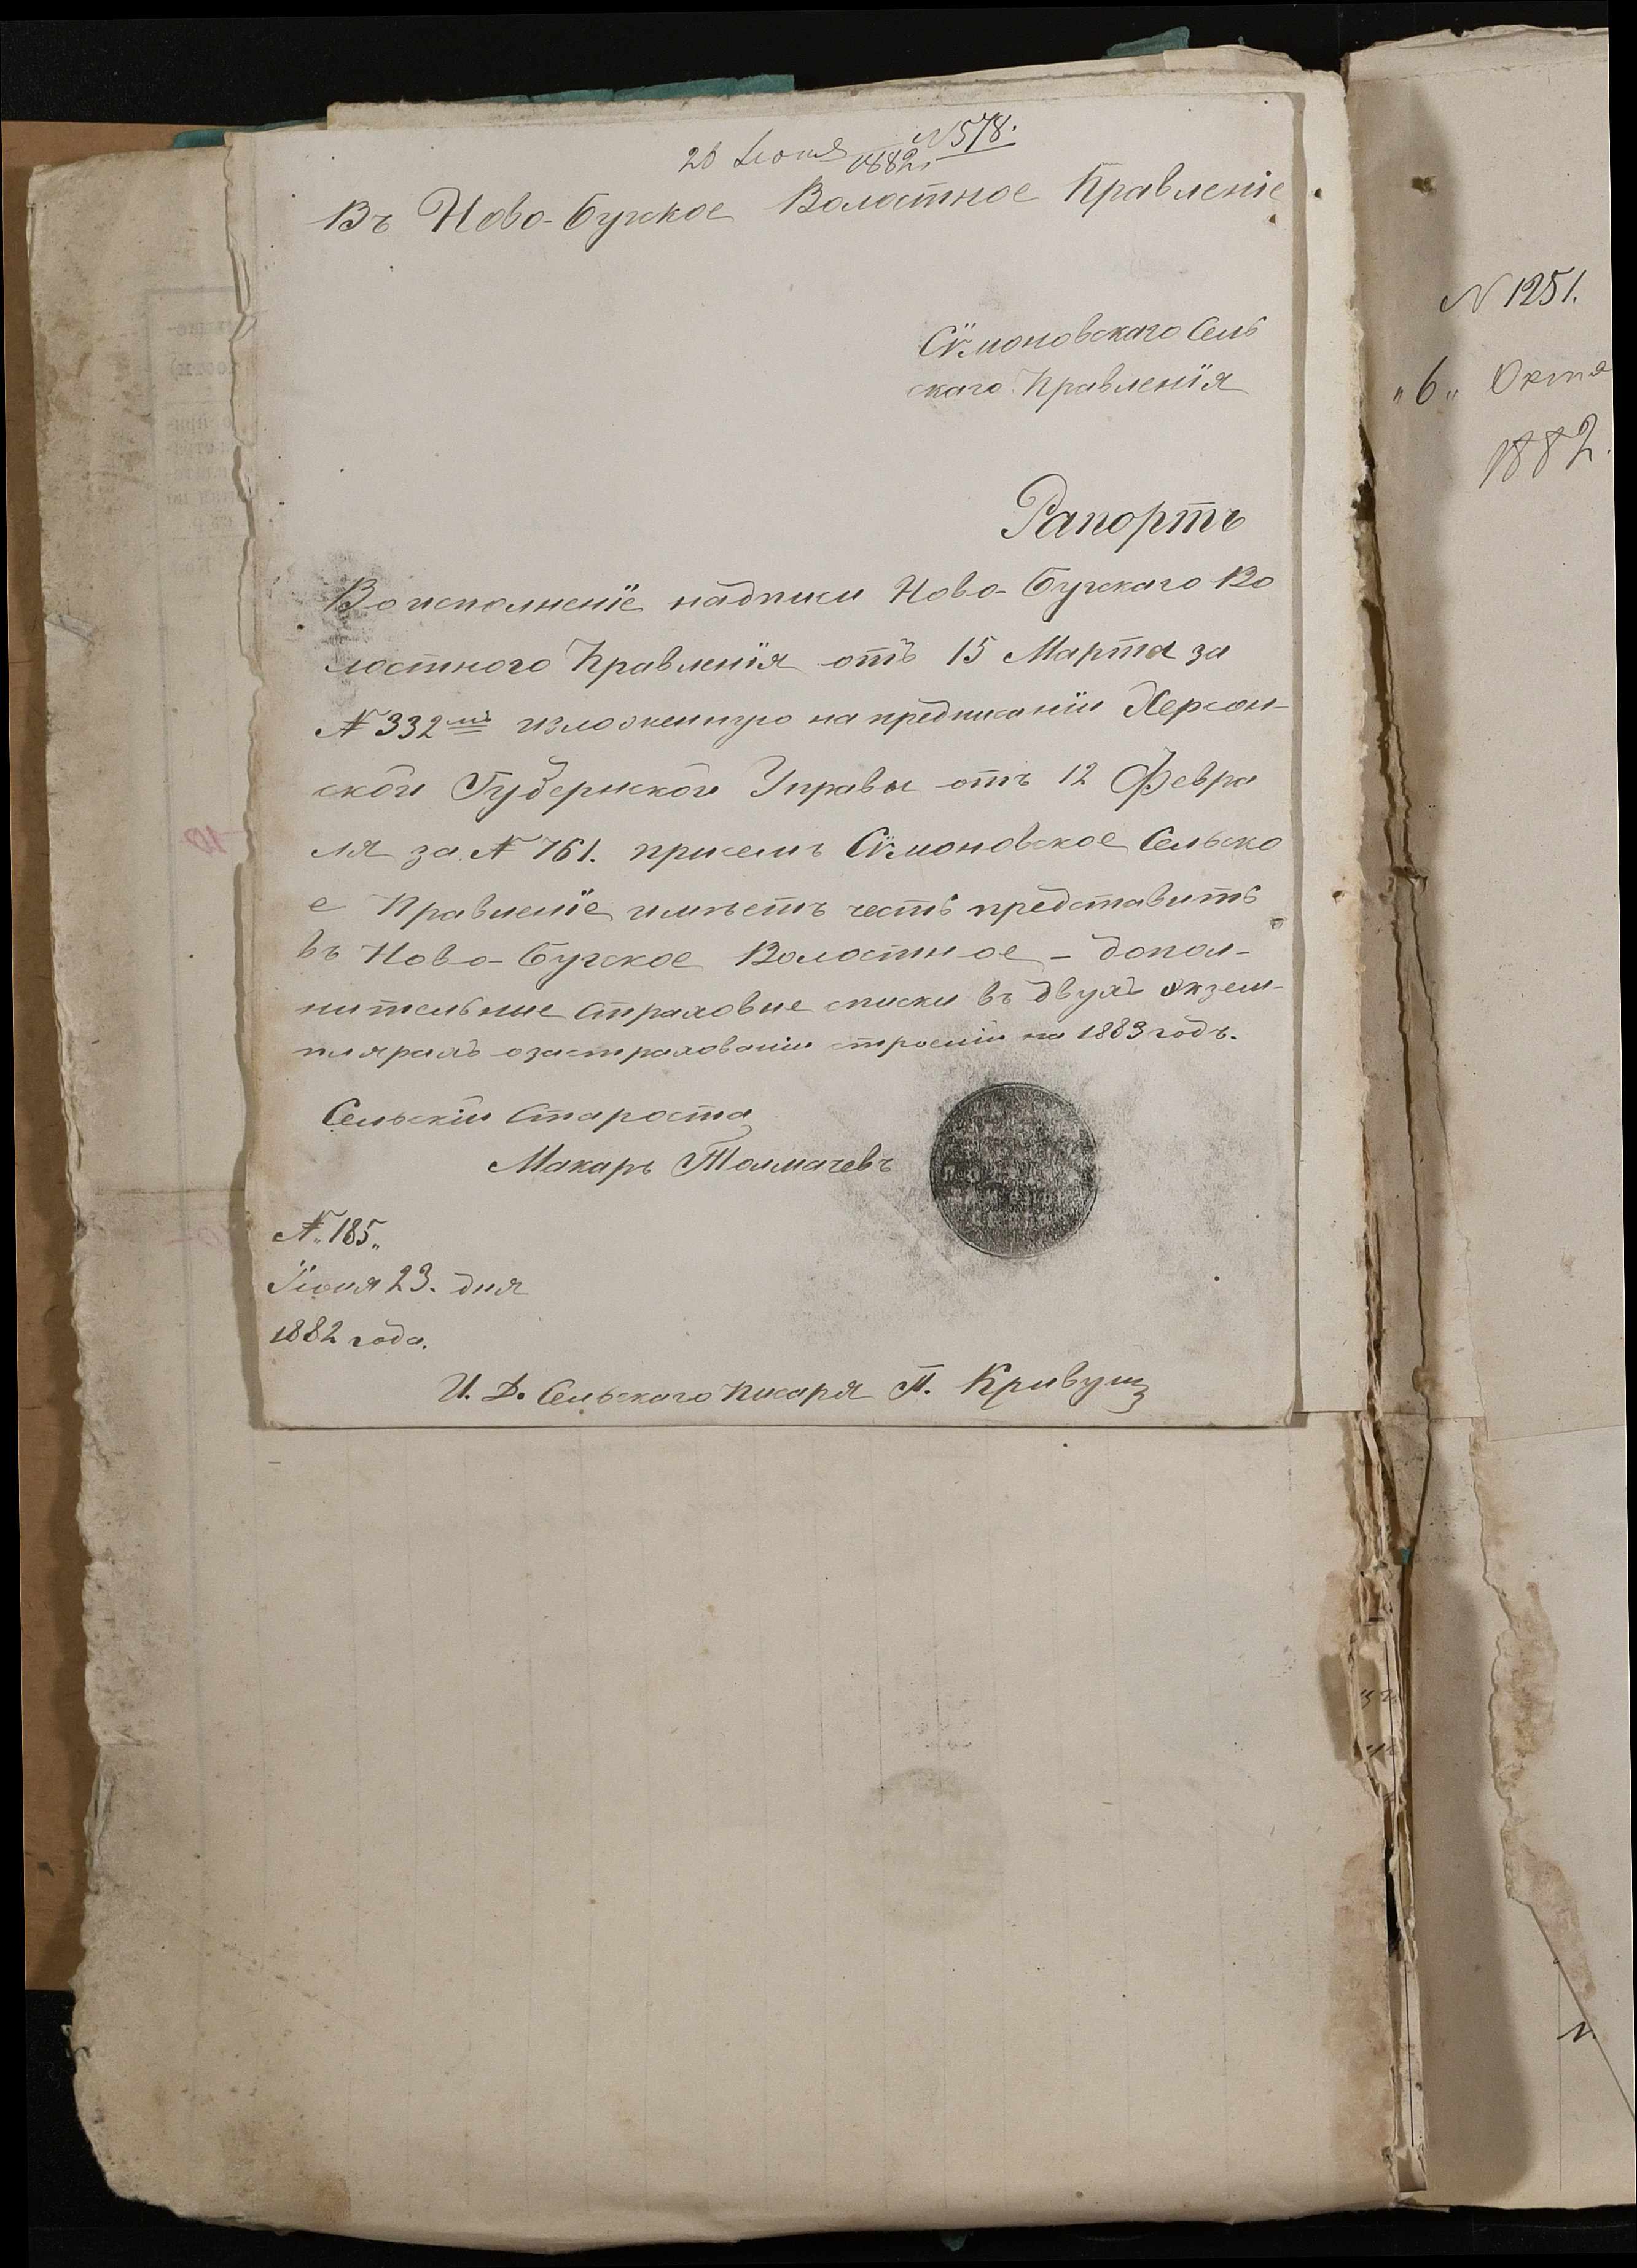 N 578.
28 Іюня 1882 г.
Въ Ново-Бугское Волостное Правленіе
Сѵмоновскаго Сель
скаго Правленія
Рапортъ
Во исполненіе надписи Ново-Бугскаго Во
лостного Правленія отъ 15 Марта за
№ 332мъ изложенную на предписаніи Херсон-
ской Губернской Управы отъ 12 Февра
ля за № 761. присемъ Сѵмоновское Сельско
е Правленіе имѣетъ честь представить
въ Ново-Бугское Волостное - допол-
нительные страховые списки въ двухъ экзем-
плярахъ о застрахованіи строеній на 1883 годъ.
Сельскій Староста
Макаръ Толмачевъ
№ 185„
Іюня 23. дня
1882 года.
И. Д. Сельскаго Писаря П. Кривуш
N 1251.
„6„ Октя
1882.